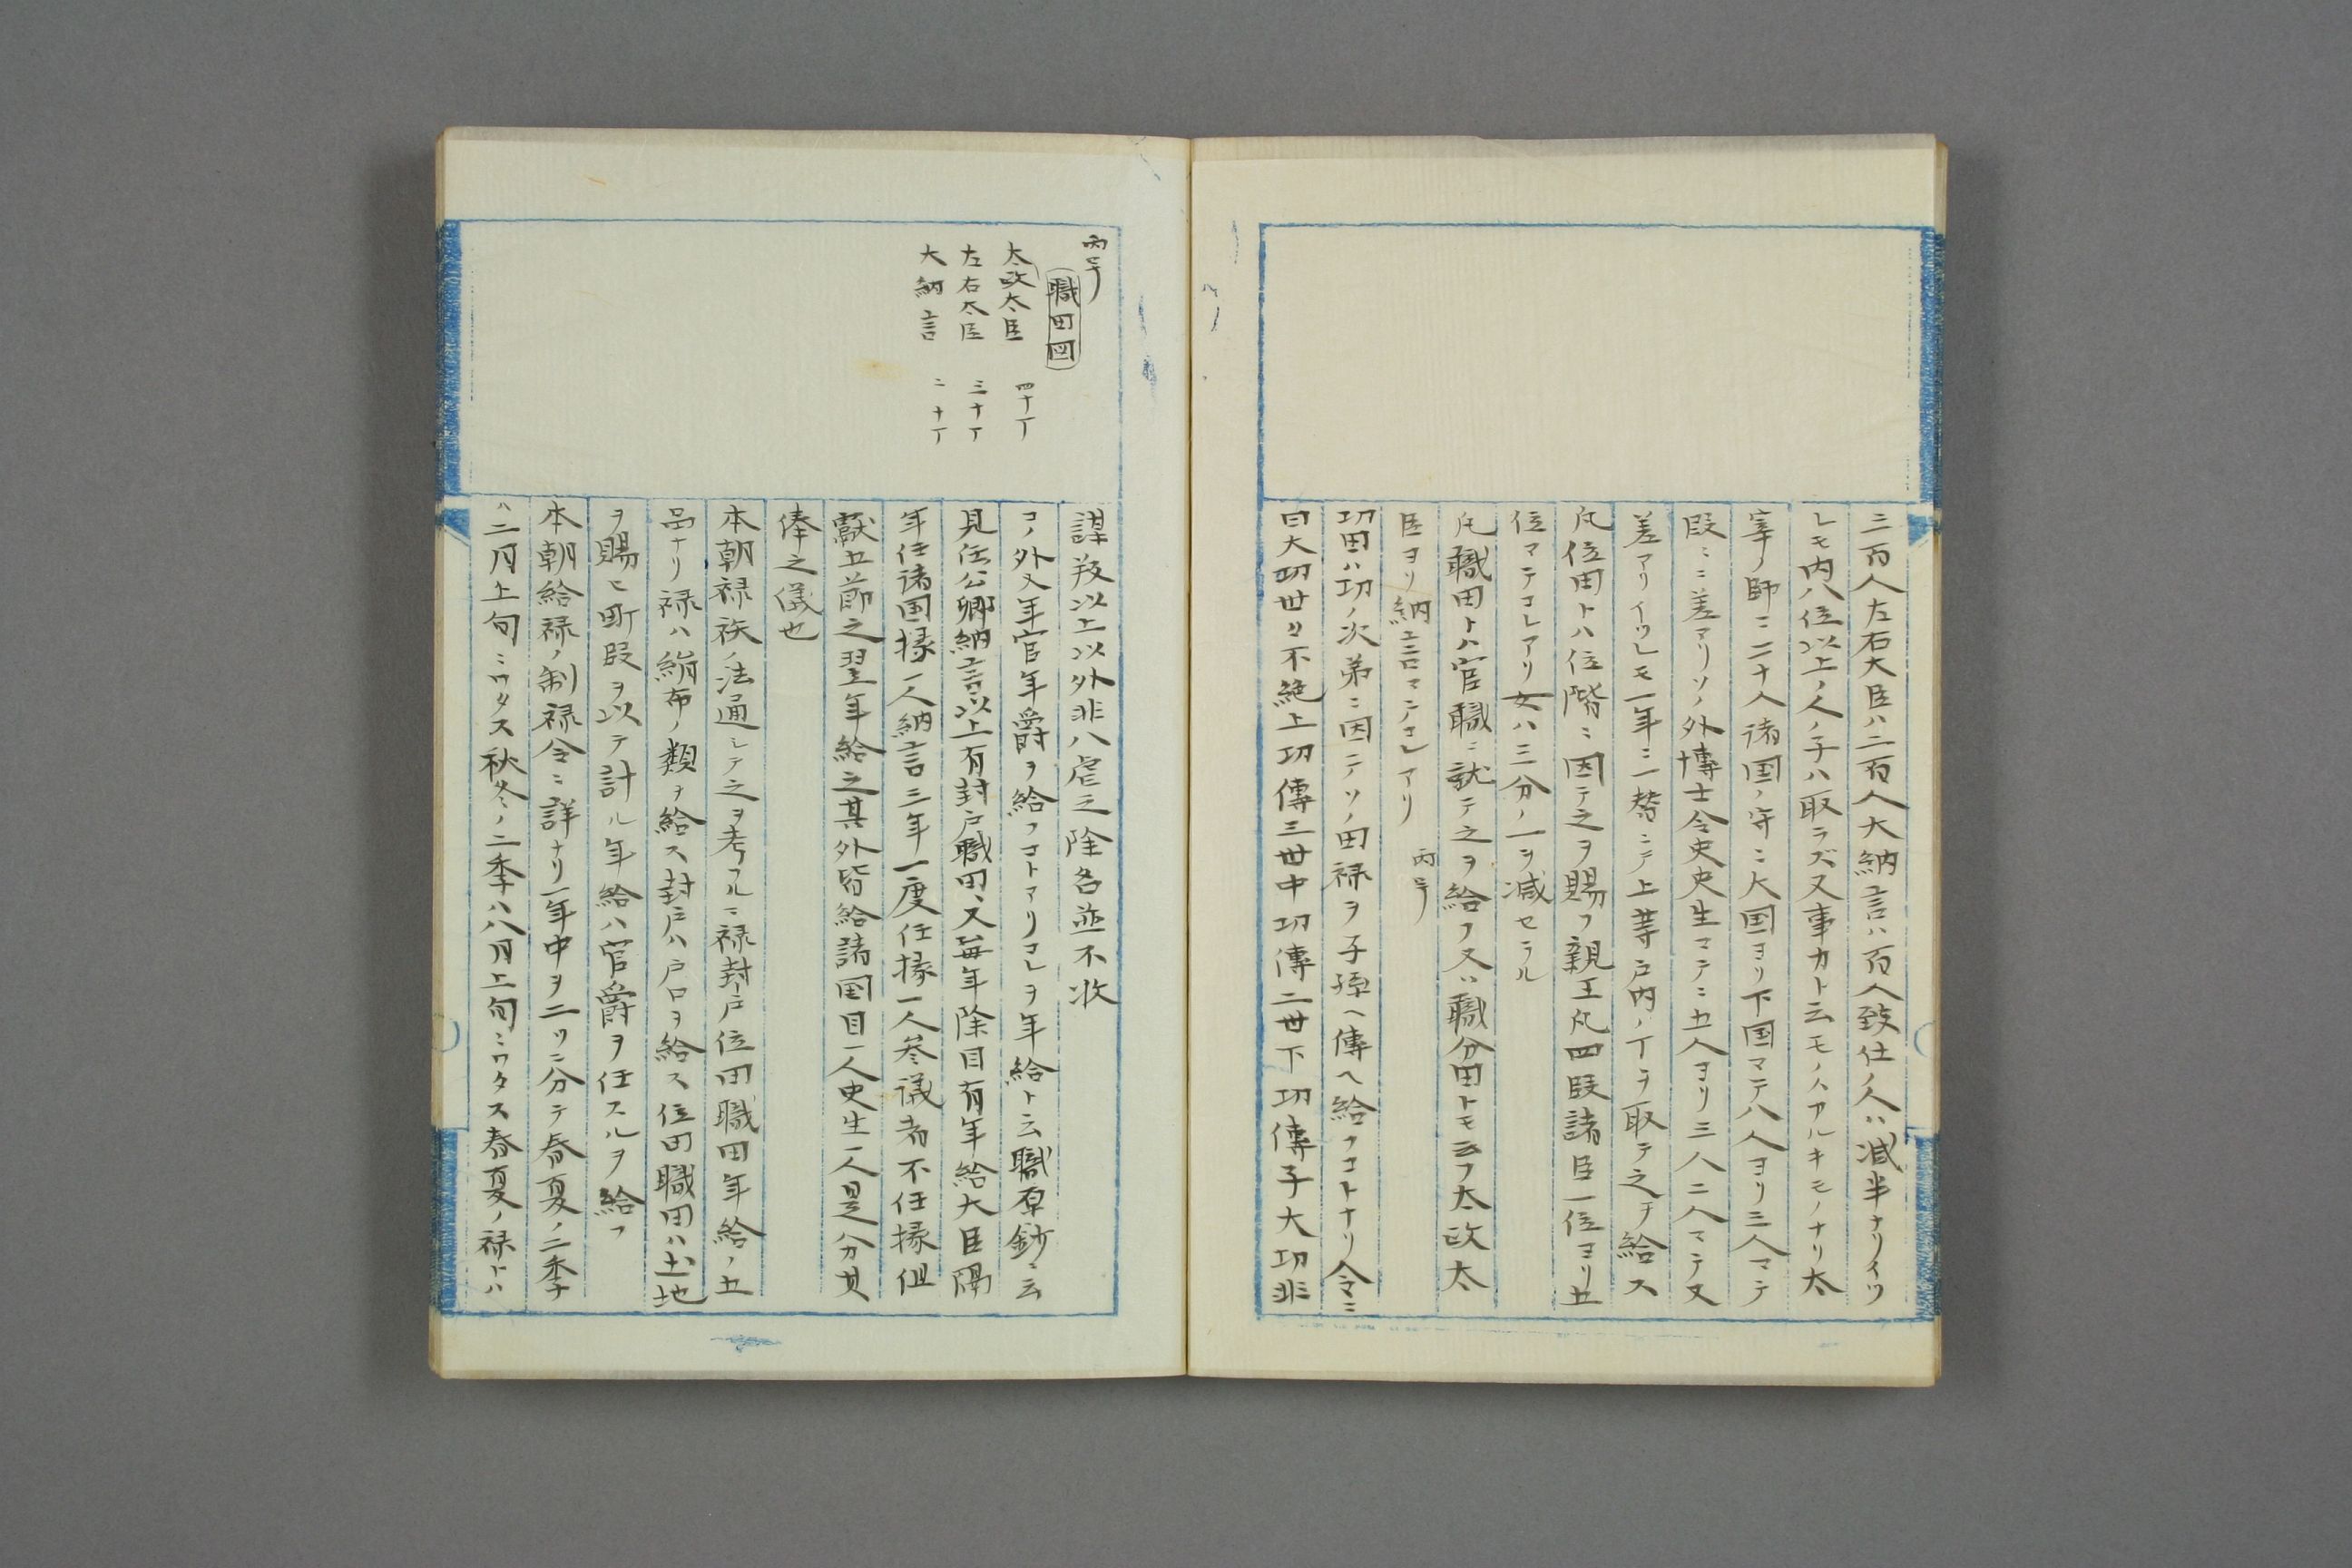 三百人左右大臣ハ二百人大納言ハ百人致仕ノ人ハ減半ナリイツ
レモ内八位以上ノ人ノ子ハ取ラズ又事力ト云モノハアルキモノナリ太
宰ノ師ニ二十人諸国ノ守ニ大国ヨリ下国マテ八人ヨリ三人マテ
段ニ差アリソノ外博士令史史生マテニ五人ヨリ三人二人マテ又
差アリイツレモ一年ニ一替ニテ上等戸内ノ丁ヲ取テ之ヲ給ス
凡位田トハ位階ニ因テ之ヲ賜フ親王凡四段諸臣一位ヨリ五
位マテコレアリ女ハ三分ノ一ヲ減セラル
凡職田トハ官職ニ就テ之ヲ給フ又ハ職分田トモ云フ太政太
臣ヨリ納言マテコレアリ 丙号
功田ハ功ノ次第ニ因テソノ田禄ヲ子孫ヘ傳ヘ給フコトナリ令ニ
曰大功世々不絶上功傳三世中功傳二世下功傳子大功非
丙号
職田図
太政太臣 四十丁
左右太臣 三十丁
大納言 二十丁
謀叛以上以外非八虐之除名並不收
コノ外又年官年爵ヲ給フコトアリコレヲ年給ト云職原鈔ニ云
見任公卿納言以上有封戸職田又毎年除目有年給大臣隔
年任諸国掾一人納言三年一度任掾一人参議者不任掾但
獻五節之翌年給之其外皆給諸国目一人史生一人是分其
俸之儀也
本朝禄秩ノ法通シテ之ヲ考フルニ禄封戸位田職田年給ノ五
品ナリ禄ハ絹布ノ類ヲ給ス封戸ハ戸口ヲ給ス位田職田ハ土地
ヲ賜ヒ町段ヲ以テ計ル年給ハ官爵ヲ任スルヲ給フ
本朝給禄ノ制禄令ニ詳ナリ一年中ヲ二ツニ分テ春夏ノ二季
ハ二月上旬ニワタス秋冬ノ二季ハ八月上旬ニワタス春夏ノ禄トハ